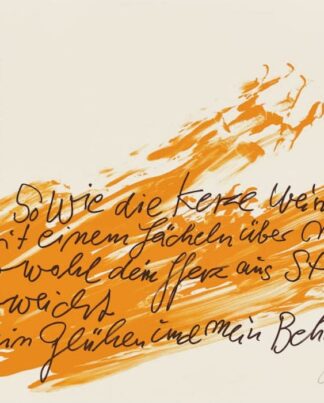 So wie die Kerze wein
it einem Lächeln über
wohl dein Herz aus St
weicht
in Glühen und mein Be